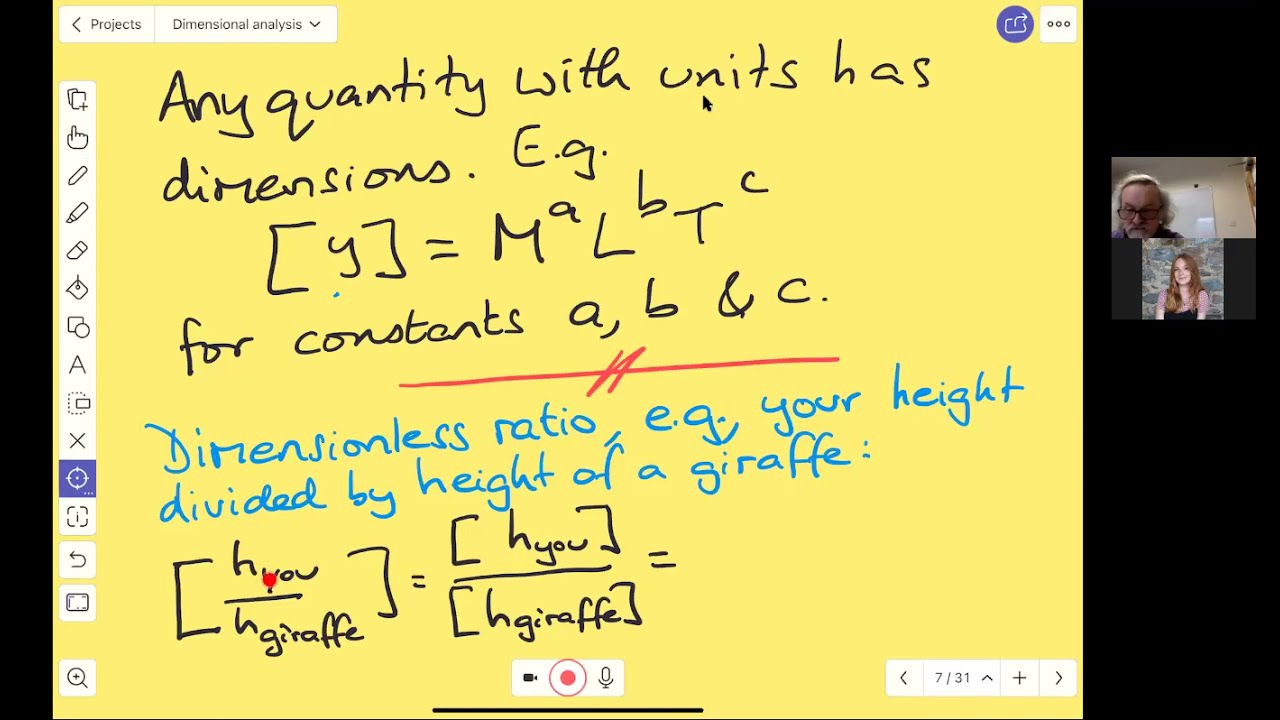 Projects
Dimensional analysis
Any quantity with units has
dimensions. E.g.
[y] = M^a L^b T^c
for constants a, b & c.
Dimensionless ratio, e.g., your height
divided by height of a giraffe:
[h_you / h_giraffe] = [h_you] / [h_giraffe] =
A
7 / 31